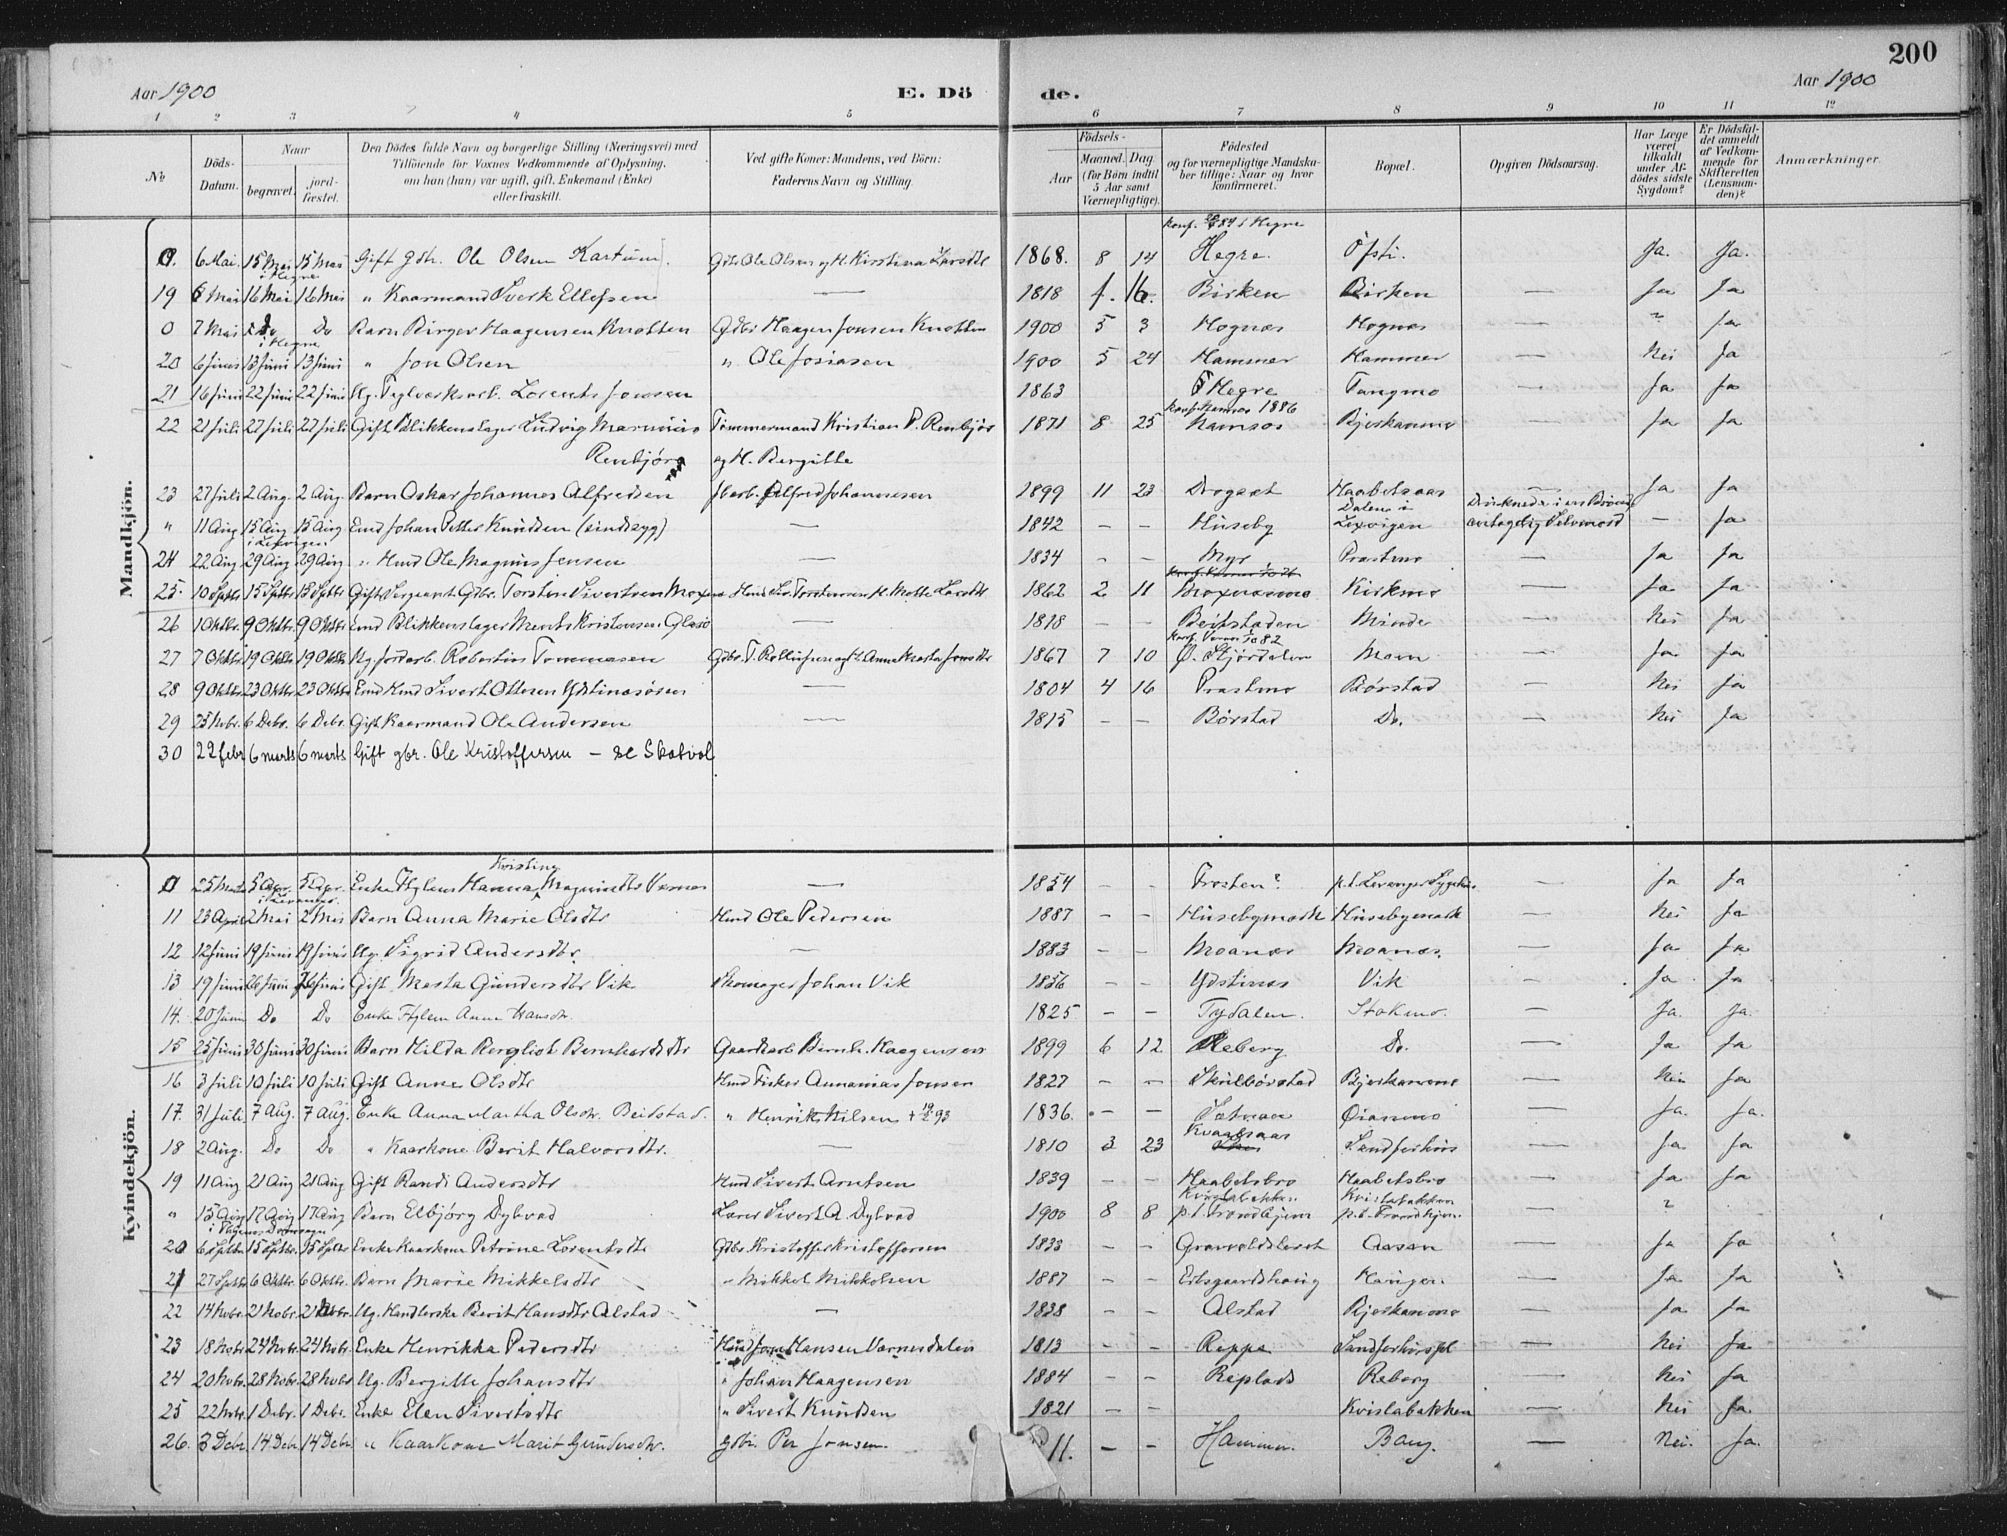 200
Aar 1900 E. Dö de. Aar 1900
1 2 3 4 5 6 7 8 9 10 11 12
№ Döds-Datum. Naar begravet. jord-fæstet. Den Dödes fulde Navn og borgerlige Stilling (Næringsvei) med Tilföiende for Voxnes Vedkommende af Oplysning, om han (hun) var ugift, gift, Enkemand (Enke) eller fraskilt. Ved gifte Koner: Mandens, ved Börn: Faderens Navn og Stilling. Födsels- Aar Maaned. Dag. (for Börn indtil 5 Aar samt Værnepligtige). Födested og for værnepligtige Mandskaber tillige: Naar og hvor konfirmeret. Bopæl. Opgiven Dödsaarsag. Har Læge været tilkaldt under Afdödes sidste Sygdom? Er Dödsfaldet anmeldt af Vedkommende for Skifteretten (Lensmanden)? Anmærkninger.
Mandkjön.
konf. 84 i Hegre
0. 6 Mai 15 Mai i Hegre 15 Mai Gift Gdr. Ole Olsen Kartum Gdbr. Ole Olsen og H. Kirstina Larsdtr 1868. 8 14 Hegre. Öfsti. Ja. Ja.
19 6 Mai 16 Mai 16 Mai " Kaarmand Sverk Ellefsen — 1818 1. 16. Birken Birken — Ja Ja
0 7 Mai Do i Hegre Do Barn Birger Haagensen Knotten Gdbr. Haagen Jonsen Knotten 1900 5 3 Hognæs Hognæs — ? Ja
20 6 Juni 13 Juni 13 Juni " Jon Olsen " Ole Josiasen 1900 5 24 Hammer Hammer — Nei Ja
21 16 Juni 22 Juni 22 Juni Ug. Teglverksarb. Lorents Jonsen 1863 Hegre Tangmo — Ja Ja
konf. Namsos 1886
22 21 Juli 27 Juli 27 Juli Gift Blikkenslager Ludvig Marinius Tömmermand Kristian P. Renbjör 1871 8 25 Namsos Bjerkanmo — Ja Ja
Renbjör og H. Bergitte
23 27 Juli 2 Aug. 2 Aug. Barn Oskar Johannes Alfredsen Alfred Johannesen 1899 11 23 Drogset Haabetsaas — Ja Ja
" 11 Aug 15 Aug i Lexvigen 15 Aug Emd Johan Petter Knudsen (sindssyg) — 1842 – – Huseby Dalens i Lexvigen Druknede i en Brönd antagelig Selvmord — Ja
24 22 Aug 29 Aug 29 Aug " Hmd Ole Magnus Jensen — 1834 – – Myr Prestmo — Ja Ja
25 10 Septbr 15 Septbr 15 Septbr Gift Sergeant Gdbr. Torsten Sivertsen Moxnes Hmd Siv. Torstensen H. Mette Larsdtr 1862 2 11 Moxnesmo Kirkmo — Ja Ja
26 1 Oktbr. 9 Oktbr 9 Oktbr Emd Blikkenslager Ments Kristensen — 1818 – – Beitstaden Minde — Nei Ja
konf. Værnes 82
27 7 Oktbr 19 Oktbr 19 Oktbr Ug. Jordarb. Robertin Tommasen Gdbr. T. Anne Marta Jonsdtr 1867 7 10 Ö. Stjördalen Moen — Ja Ja
28 9 Oktbr. 23 Oktbr 23 Oktbr Emd Hmd Sivert Ottesen — 1804 4 16 Prestmo Börstad — Nei Ja
29 25 Nobr. 6 Debr. 6 Debr. Gift Kaarmand Ole Andersen — 1815 – – Börstad Do. — Nei Ja
30 22 febr 6 marts 6 marts Gift gbr. Ole Kristoffersen – se Skatval
Kvindekjön.
Kristine
0 25 Marts 5 Apr. i Levanger 5 Apr. Enke Flylem Hanna Magnusdtr Værnes — 1854 – – Frosten? p.t. Levanger Sygehus — Ja Ja
11 23 April 2 Mai 2 Mai Barn Anna Marie Olsdtr Hmd Ole Pedersen 1887 – – Husebymark Husebymark — Nei Ja
12 12 Juni 19 Juni 19 Juni Ug. Sigrid Andersdtr. — 1883 – – Moanæs Moanæs. — Ja Ja
13 19 Juni 26 Juni 26 Juni Gift Marta Gundersdtr Vik Skomager Johan Vik 1856 – – Ydstines Vik — Ja Ja
14. 20 Juni Do Do Enke Flylem Anne Hansdtr. 1825 – – Tydalen. Stokmo. — Ja. Ja.
15 25 Juni 30 Juni 30 Juni Barn Hilda Bergliot Bernhardsdtr Gaardarb Bernh. Haagensen 1899 6 12 Reberg Do. — Ja Ja
16 3 Juli 10 Juli 10 Juli Gift Anne Olsdtr Hmd Fisker Annanias Jonsen 1827 – – Skulbörstad Bjerkanmo — Nei Ja
17. 31 Juli 7 Aug. 7 Aug. Enke Anna Martha Olsdtr. Beistad. " Henrik Nilsen + 93 1836. – – Öianmo — Ja. Ja.
18 2 Aug. Do Do " Kaarkone Berit Halvorsdtr. — 1810 3 23 Kvaalsaas Sandferhus — Ja Ja
19 11 Aug 21 Aug 21 Aug Gift Randi Andersdtr Hmd Sivert Arntsen 1839 – – Haabetsbro Haabetsbro — Ja Ja
" 15 Aug 17 Aug 17 Aug Barn Elbjörg Dybvad Lærer Sivert A. Dybvad 1900 8 8 Kvislabakken p.t. Trondhjem Kvislabakken p.t. Trondhjem. — ?
20 6 Septbr 15 Septbr. 15 Septbr Enke Kaarkone Petrine Lorentsdtr Gdbr. Kristoffer Kristoffersen 1833 – – Aasen — Ja Ja
21 27 Septbr 6 Oktbr 6 Oktbr. Barn Marie Mikkelsdtr " Mikkel Mikkelsen 1887 – – Ertsgaardshaug — Ja Ja
22 14 Nobr. 21 Nobr. 21 Nobr. Ug. Handlerske Berit Hansdtr Alstad — 1838 – – Alstad Bjerkanmo — Ja Ja
23 18 Nobr. 24 Nobr. 24 Nobr. Enke Henrikka Pedersdtr Hmd Jon Hansen Værnesdalen 1813 – – Reppe Sandferhus pl — Nei Ja
24 20 Nobr. 28 Nobr. 28 Nobr Ug. Bergitte Johansdtr " Johan Haagensen 1884 – – Replads Reberg — Nei Ja
25 22 Nobr. 1 Debr. 1 Debr. Enke Elen Sivertsdtr " Sivert Knudsen 1821 – – Kvislabakken — Nei Ja
26. 3 Debr 14 Debr 14 Debr. " Kaarkone Marit Gundersdtr. Gdbr. Per Jonsen. 11. – – Hammer. Bang. — Nei. Ja.